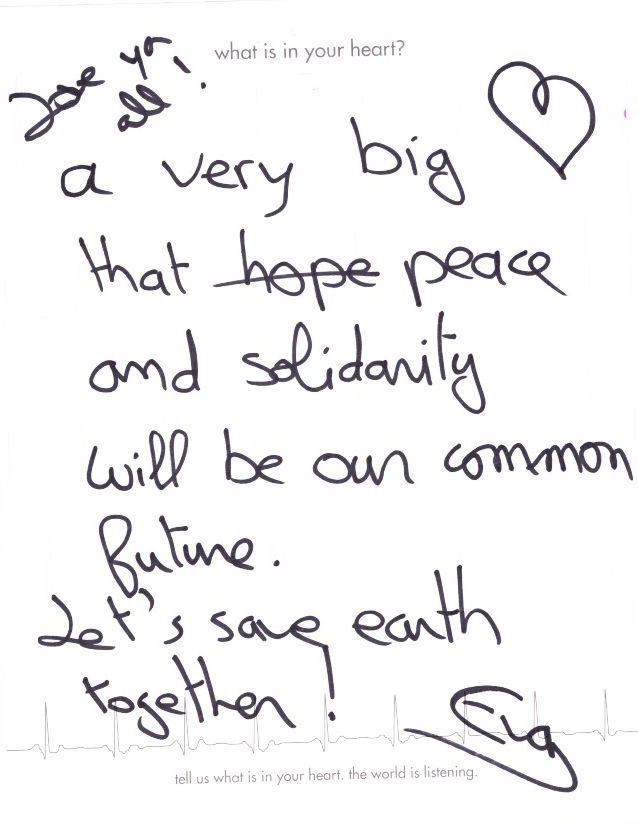 what is in your heart?
Love you
all!
a very big
that hope peace
and solidarity
will be our common
future.
Let's save earth
together!
tell us what is in your heart. the world is listening.